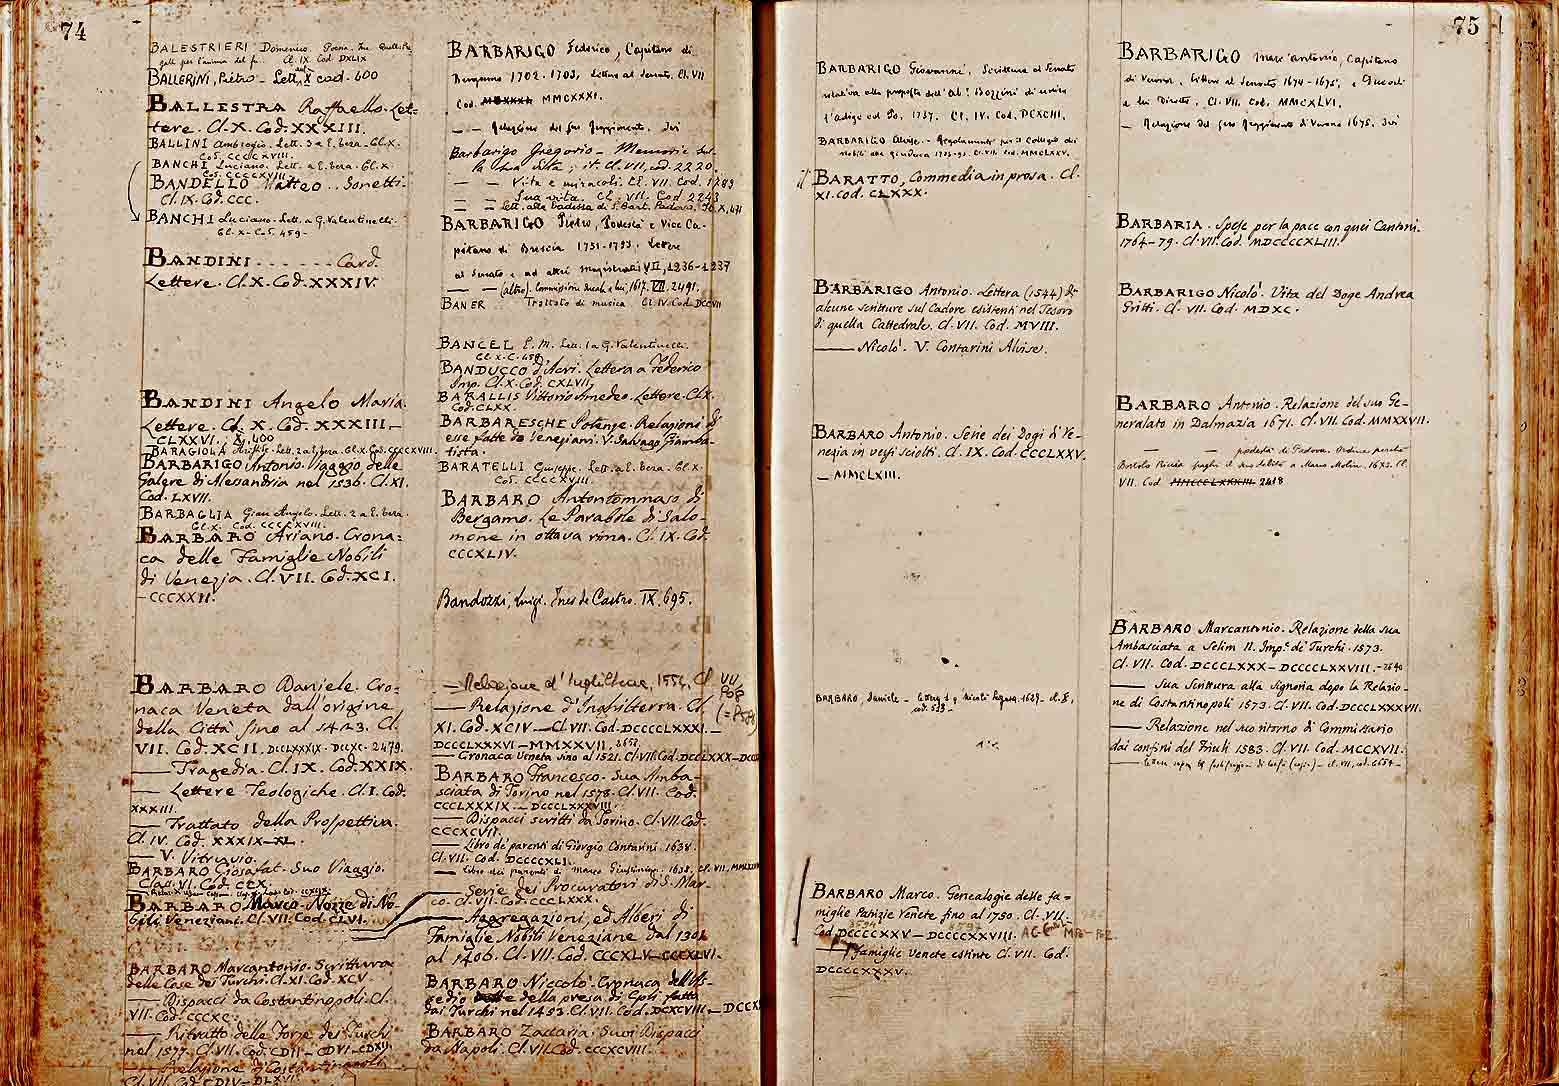 74
BALESTRIERI Domenico. Poesia
Cl. IX. Cod. DXLIX
BALLERINI, Pietro - Lett. X cod. 600
BALLESTRA Raffaello. Let-
tere. Cl. X. Cod. XXXIII.
BALLINI Ambrogio. Lett. 3 a E. Teza. Cl. X.
Cod. CCCCXVIII.
BANCHI Luciano. Lett. a E. Teza. Cl. X.
Cod. CCCCXVIII.
BANDELLO Matteo. Sonetti.
Cl. IX. Cod. CCC.
BANCHI Luciano. Lett. a G. Valentinelli.
Cl. X. Cod. 459.
BANDINI . . . . . . . Card.
Lettere. Cl. X. Cod. XXXIV.
BANDINI Angelo Maria.
Lettere. Cl. X. Cod. XXXIII.—
CLXXVI. X, 400
BARAGIOLA Aristide. Lett. 2 a E. Teza. Cl. X. Cod. CCCCXVIII.
BARBARIGO Antonio. Viaggio delle
Galere di Alessandria nel 1536. Cl. XI.
Cod. LXVII.
BARBAGLIA Gian Angelo. Lett. 2 a E. Teza.
Cl. X. Cod. CCCCXVIII.
BARBARO Ariano. Crona=
ca delle Famiglie Nobili
di Venezia. Cl. VII. Cod. XCI.
- CCCXXII.
BARBARO Daniele. Cro=
naca Veneta dall'origine
della Città fino al 1423. Cl.
VII. Cod. XCII. DCCLXXXIX. DCCXC. 2479.
— Tragedia. Cl. IX. Cod. XXIX.
— Lettere Teologiche. Cl. I. Cod.
XXXIII.
— Trattato della Prospettiva.
Cl. IV. Cod. XXXIX—XL.
— V. Vitruvio.
BARBARO Giosafat. Suo Viaggio.
Clas. VI. Cod. CCX.
BARBARO Marco. Nozze di No-
bili Veneziani. Cl. VII. Cod. CLVI.
BARBARO Marcantonio. Scrittura
delle Cose dei Turchi. Cl. XI. Cod. XCV.
— Dispacci da Costantinopoli. Cl.
VII. Cod. CCCXC.
— Ritratto delle Forze dei Turchi
nel 1577. Cl. VII. Cod. CDII — CDVI — CDXII.
— Relazione di Costantinopoli.
Cl. VII. Cod. CDIV — DLXVI.
BARBARIGO Federico, Capitano di
Bergamo 1702-1703, lettere al Senato. Cl. VII
Cod. MMCXXXI.
— — Relazione del suo Reggimento. Ivi
Barbarigo Gregorio - Memorie sul-
la sua vita; it. Cl. VII, cod. 2220.
— — Vita e miracoli. Cl. VII. Cod. 1289
— — Sua vita. Cl. VII. Cod 2243
BARBARIGO Pietro, Podestà e Vice Ca-
pitano di Brescia 1791-1793. Lettere
al Senato e ad altri magistrati VII, 1236-1237
— — (altro). Commissione ducale a lui, 1617. VII. 2491.
BANER Trattato di musica Cl. IV. Cod. DCCVII
BANCEL E. M. Lett. 1 a G. Valentinelli.
Cl. X. C. 459.
BANDUCCO d'Acri. Lettera a Federico
Imp. Cl. X. Cod. CXLVII.
BARALLIS Vittorio Amedeo. Lettere. Cl. X.
Cod. CLXX.
BARBARESCHE Potenze. Relazioni di
esse fatte da Veneziani. V. Salvago Giamba-
tista.
BARATELLI Giuseppe. Lett. a E. Teza. Cl. X.
Cod. CCCCXVIII.
BARBARO Antontommaso di
Bergamo. Le Parabole di Salo-
mone in ottava rima. Cl. IX. Cod.
CCCXLIV.
Bandozzi, Luigi. Ines de Castro. IX, 695.
— Relazione d'Inghilterra, 1551. Cl. VII,
— Relazione d'Inghilterra. Cl.
XI. Cod. XCIV — Cl. VII. Cod. DCCCCLXXXI. —
DCCCLXXXVI — MMXXVII.
— Cronaca Veneta sino al 1521. Cl. VII. Cod. DCCLXXX
BARBARO Francesco. Sua Amba-
sciata di Torino nel 1578. Cl. VII. Cod.
CCCLXXXIX — DCCCLXXXVIII.
— Dispacci scritti da Torino. Cl. VII. Cod.
CCCXCVII.
— Libro de' parenti di Giorgio Contarini. 1638.
Cl. VII. Cod. DCCCCXLI.
— Serie dei Procuratori di S. Mar-
co. Cl. VII. Cod. CCCLXXX.
— Aggregazioni, ed Alberi di
Famiglie Nobili Veneziane dal 1301
al 1406. Cl. VII. Cod. CCCXLV — CCCXLVI.
BARBARO Niccolò. Cronaca dell'As-
sedio della presa di Cpli fatta
dai Turchi nel 1453. Cl. VII. Cod. DCXCVIII
BARBARO Zaccaria. Suoi Dispacci
da Napoli. Cl. VII. Cod. CCCXCVIII.
75
BARBARIGO Giovanni, Scrittura al Senato
relativa alla proposta dell'Ab. Bozzini di unire
l'Adige col Po, 1737. Cl. IV. Cod. DCXCIII.
BARBARIGO Alvise. - Regolamenti per il Collegio dei
Nobili alla Giudecca Cl. VII. Cod. MMCLXXV.
BARATTO, Commedia in prosa. Cl.
XI. Cod. CLXXX.
BARBARIGO Antonio. Lettera (1544) di
alcune scritture sul Cadore esistenti nel Tesoro
di quella Cattedrale. Cl. VII. Cod. MVIII.
— Nicolò. V. Contarini Alvise.
BARBARO Antonio. Serie dei Dogi di Ve-
nezia in versi sciolti. Cl. IX. Cod. CCCLXXV.
— MMCLXIII.
BARBARO, Daniele — 1689. cl. X,
cod. 523 -
BARBARO Marco. Genealogie delle fa=
miglie Patrizie Venete fino al 1750. Cl. VII.
Cod. DCCCCXXV — DCCCCXXVIII.
— Famiglie Venete estinte Cl. VII. Cod.
DCCCCXXXV.
BARBARIGO Marc'antonio, Capitano
di Verona, lettere al Senato 1674-1675, e Ducali
a lui dirette. Cl. VII. Cod. MMCXLVI.
— Relazione del suo Reggimento di Verona 1675. Ivi
BARBARIA. Spese per la pace con quei Cantoni.
1764-79. Cl. VII. Cod. MDCCCCXLIII.
BARBARIGO Nicolò. Vita del Doge Andrea
Gritti. Cl. VII. Cod. MDXC.
BARBARO Antonio. Relazione del suo Ge-
neralato in Dalmazia 1671. Cl. VII. Cod. MMXXVII.
— — podestà di Padova. Ordine perchè
Bortolo Riccia paghi il suo debito a Marco Molin. 1672. Cl.
VII. Cod. 2418
BARBARO Marcantonio. Relazione della sua
Ambasciata a Selim II. Imp.e de' Turchi. 1573.
Cl. VII. Cod. DCCCLXXX — DCCCCLXXVIII. - 2640
— Sua Scrittura alla Signoria dopo la Relazio-
ne di Costantinopoli 1573. Cl. VII. Cod. DCCCLXXXVII.
— Relazione nel suo ritorno di Commissario
dai confini del Friuli 1583. Cl. VII. Cod. MCCXVII.